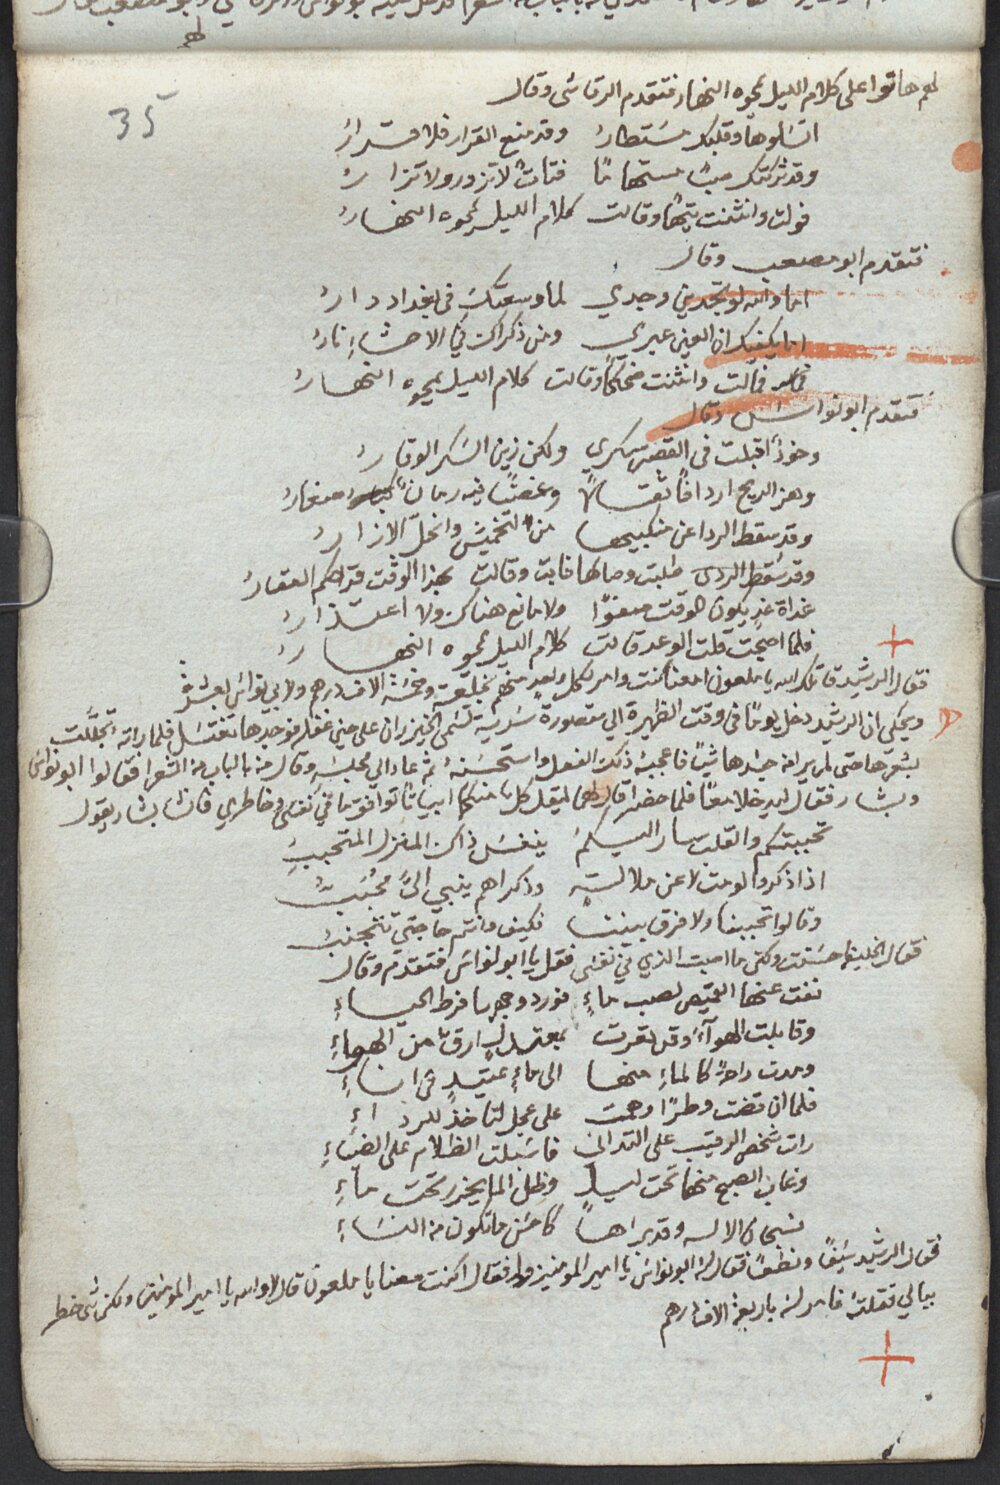 لهم هاتوا على كلام الليل يمحوه النهار فتقدم الرقاشي وقال
35
اتسلوها وقلبك مستطار وقد منع القرار فلا قرار
وقد تركتك صبا مستهاما فتاة لا تزور ولا تزار
فولت وانثنت تيها وقالت كلام الليل يمحوه النهار
فتقدم ابو مصعب وقال
اما والله لو تجدين وجدي لما وسعتك في بغداد دار
اما يكفيك ان العين عبرى ومن ذكراك في الاحشاء نار
فمالت وانثنت ضحكا وقالت كلام الليل يمحوه النهار
فتقدم ابو نواس وقال
وخود اقبلت في القصر سكرى ولكن زين السكر الوقار
وهز الريح اردافا ثقالا وغصنا فيه رمان صغار
وقد سقط الردا عن منكبيها من التخميش وانحل الازار
وقد سقط الردى طلبت وصالها فابت وقالت بهذا الوقت قدامكم العقار
غداة غد يكون الوقت صفوا ولا مانع هناك ولا اعتذار
فلما اصبحت قلت الوعد قالت كلام الليل يمحوه النهار
فقال الرشيد قاتلك الله يا ملعون امعنا كنت وامر لكل واحد منهم بخلعة وخمسة الاف درهم ولابي نواس بعشرة
ويحكى ان الرشيد دخل يوما في وقت الظهيرة الى مقصورة سرية تسمى الخيزران على حين غفلة فوجدها تغتسل فلما راته تجللت
بشعرها حتى لم ير من جسدها شيئا فاعجبه ذلك الفعل واستحسنه ثم عاد الى مجلسه وقال من بالباب من الشعرا فقالوا ابو نواس
وبشار فقال ليدخلا معا فلما حضرا قال لهما ليقل كل منكما ابياتا توافق ما في نفسي وخاطري فانشا بشار يقول
تحببتكم والقلب سار اليكم بنفسي ذاك المنزل المتحبب
اذا ذكروا اعرضت لا عن ملالة وذكراهم شيء الي محبب
وقالوا تجنبنا ولا فرق بيننا فكيف وانتم حاجتي تتجنب
فقال الخليفة احسنت ولكن ما اصبت الذي في نفسي فقل يا ابو نواس فتقدم وقال
نضت عنها القميص لصب ماء فورد وجهها فرط الحياء
وقابلت الهواء وقد تعرت بمعتدل ارق من الهواء
ومدت راحة كالماء منها الى ماء عتيد في اناء
فلما ان قضت وطرا وهمت على عجل لتاخذ للرداء
رات شخص الرقيب على التداني فاسبلت الظلام على الضياء
وغاب الصبح منها تحت ليل وظل الما يخرر تحت ماء
فسبحان الاله وقد براها كاحسن ما تكون من النساء
فقال الرشيد سيفا ونطعا فقال له ابو نواس يا امير المومنين ولم فقال اكنت معنا يا ملعون قال لا والله يا امير المومنين ولكن شي خطر
ببالي فقلته فامر له باربعة الاف درهم